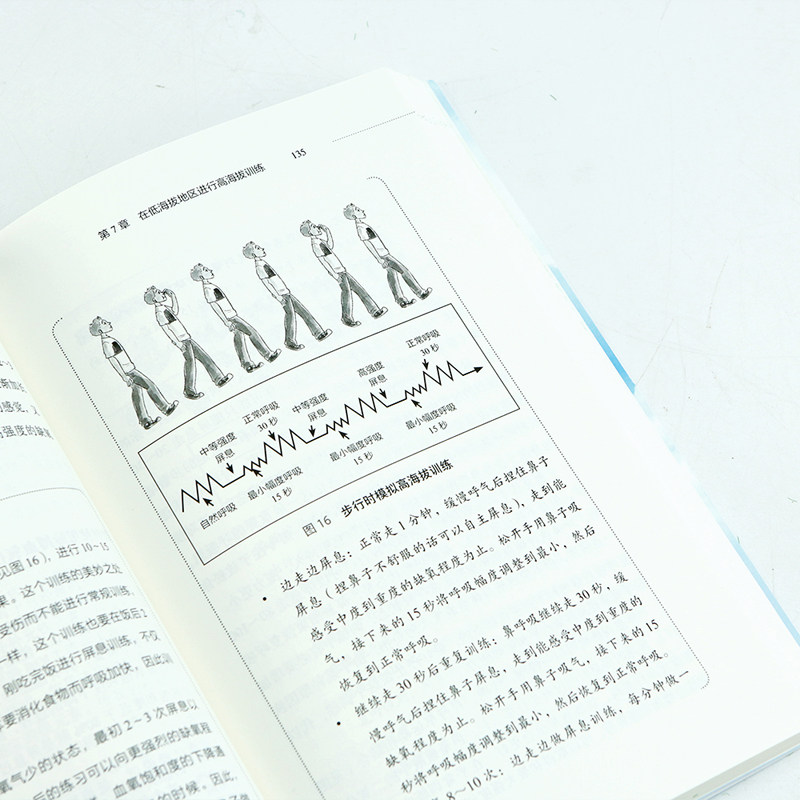 见图16），进行10~15
果。这个训练的美妙之处
受伤而不能进行常规训练
一样，这个训练也要在饭后2
刚吃完饭进行屏息训练，不仅
要消化食物而呼吸加快，因此训
最初2~3次屏息以
氧气少的状态，
后的练习可以向更强烈的缺氧程
血氧饱和度的下降通
的时候。因此，
第7章 在低海拔地区进行高海拔训练 135
正常呼吸
30秒
高强度
屏息
中等强度
屏息
正常呼吸
30秒
中等强度
屏息
自然呼吸
最小幅度呼吸
15秒
最小幅度呼吸
15秒
最小幅度呼吸
15秒
图16 步行时模拟高海拔训练
• 边走边屏息：正常走1分钟，缓慢呼气后捏住鼻子
屏息（捏鼻子不舒服的话可以自主屏息），走到能
感受中度到重度的缺氧程度为止。松开手用鼻子吸
气，接下来的15秒将呼吸幅度调整到最小，然后
恢复到正常呼吸。
• 继续走30秒后重复训练：鼻呼吸继续走30秒，缓
慢呼气后捏住鼻子屏息，走到能感受中度到重度的
缺氧程度为止。松开手用鼻子吸气，接下来的15
秒将呼吸幅度调整到最小，然后恢复到正常呼吸。
8~10次：边走边做屏息训练，每分钟做一